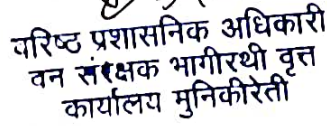 वरिष्ठ प्रशासनिक अधिकारी
वन संरक्षक भागीरथी वृत्त
कार्यालय मुनिकीरेती